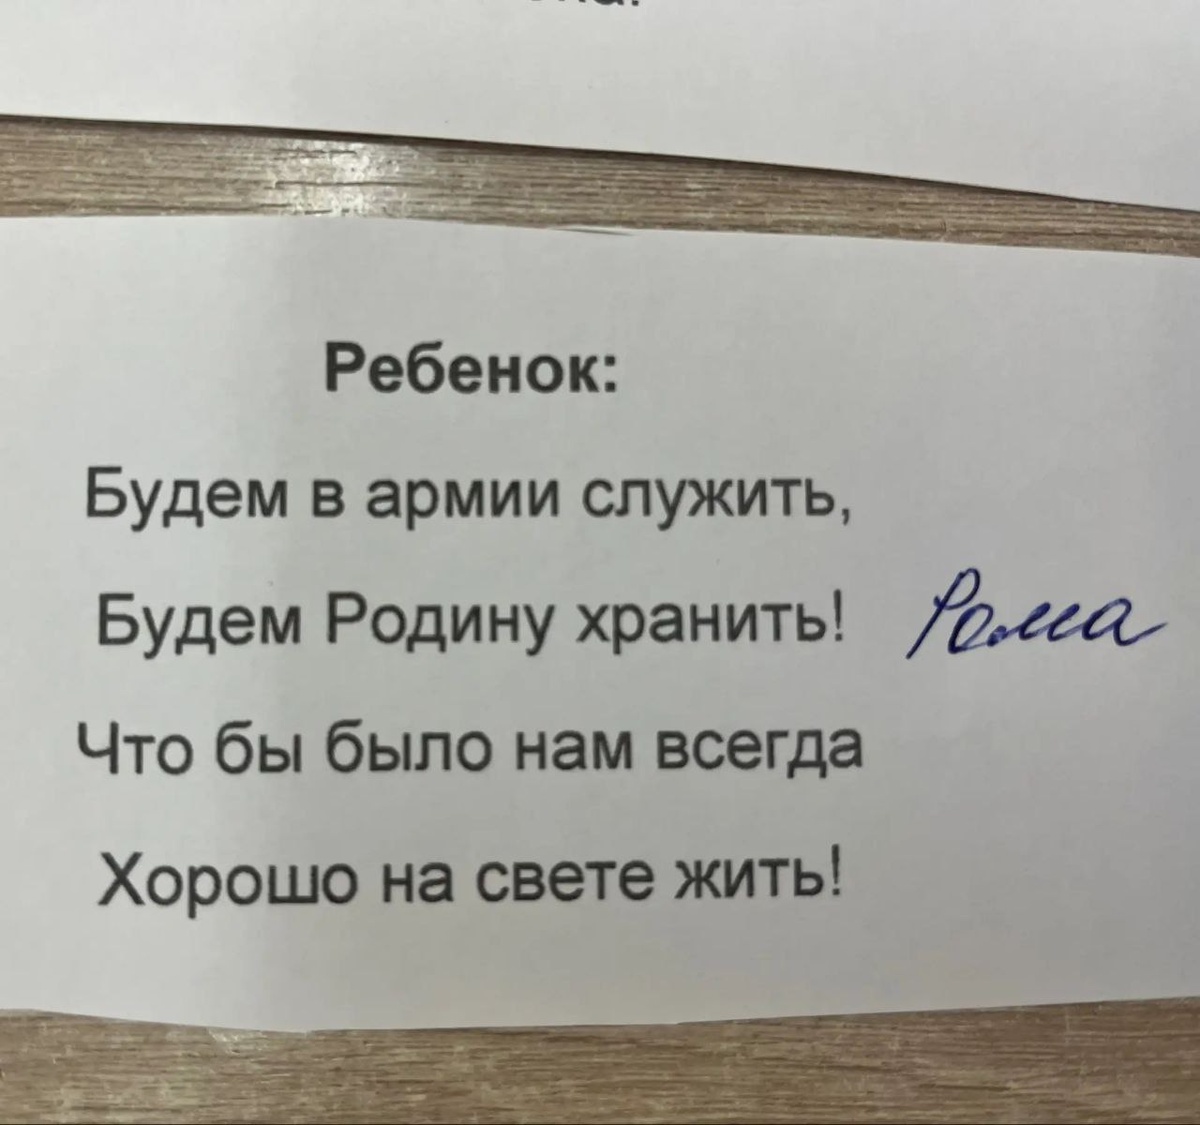 Ребенок:
Будем в армии служить,
Будем Родину хранить! Рома
Что бы было нам всегда
Хорошо на свете жить!